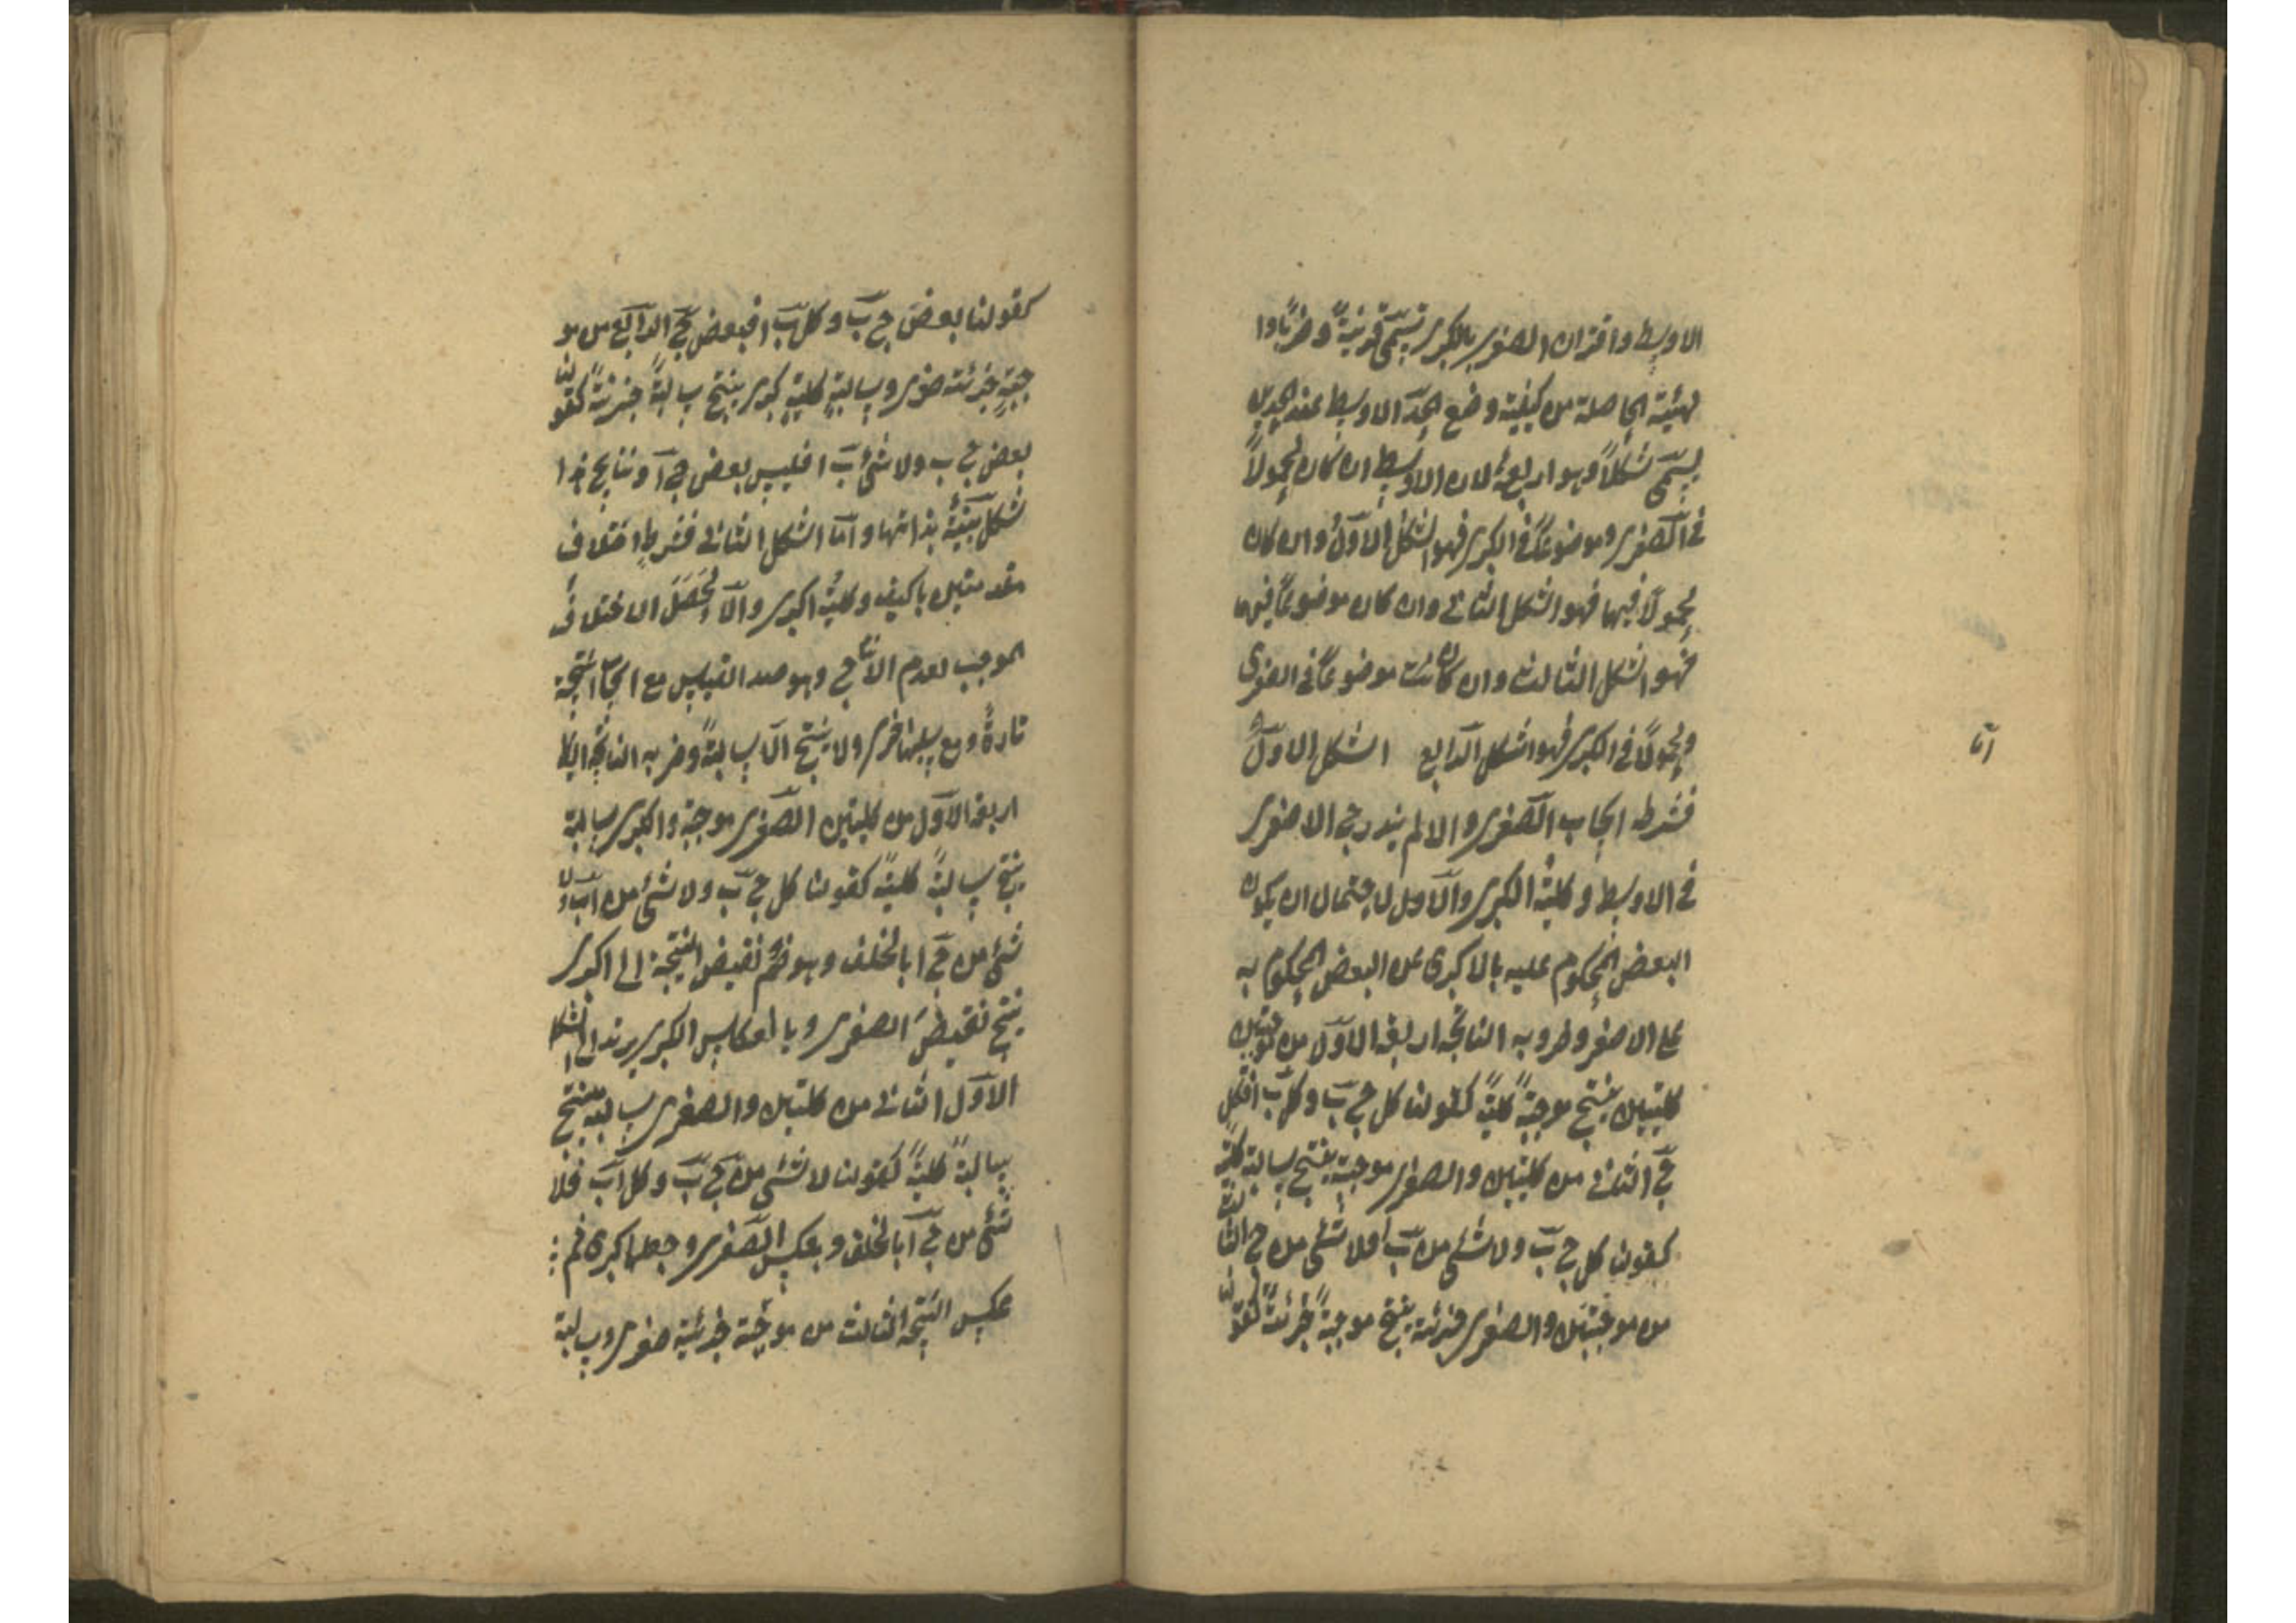 الاوسط واقتران الصغرى بالكبرى تسمّى قرينةً وضربًا وا
لهيئة الحاصلة من كيفية وضع الحدّ الاوسط عند الحدين
يسمّى شكلاً وهو اربعة لان الاوسط ان كان محمولاً
فى الصّغرى وموضوعًا فى الكبرى فهو الشكل الاوّل وان كان
محمولاً فيهما فهو الشكل الثانى وان كان موضوعًا فيهما
فهو الشكل الثالث وان كان موضوعًا فى الصغرى
ومحمولاً فى الكبرى فهو الشكل الرّابع الشكل الاوّل
امّا
فشرطه ايجاب الصّغرى والا لم يندرج الاصغر
فى الاوسط وكلّية الكبرى والّا لاحتمال ان يكون
البعض المحكوم عليه بالاكبرى عن البعض المحكوم به
على الاصغر وضروبه الناتجة اربعة الاوّل من موجبتين
كليتين ينتج موجبةً كليةً كقولنا كل ج بَ وكل بَ ا فكل
جَ ا الثانى من كليتين والصغرى موجبة ينتج سالبة كليّة
كقولنا كل ج بَ ولا شئ من بَ ا فلا شئ من ج ا الثالث
من موجبتين والصغرى جزئية ينتج موجبةً جزئيةً كقولنا
كقولنا بعض ج بَ وكل بَ ا فبعض جَ ا الرّابع من مو
جبةٍ جزئية صغرى وسالبةٍ كليةٍ كبرى ينتج سالبةً جزئيةً كقولنا
بعض ج ب ولا شئ بَ ا فليس بعض ج آ ونتايج هذا
الشكل بيّنةٌ بذاتها وامّا الشكل الثانى فشرطه اختلاف
مقدمتيه باكيف وكليّة اكبرى والّا لحَصَلَ الاختلاف
الموجب لعدم الانتاج وهو صدد القياس مع ايجاب النتيجة
تارةً ومع سلبها اخرى ولا ينتج الّا سالبةً وضربه الناتجة ايضًا
اربعة الاوّل من كليتين الصّغرى موجبة واكبرى سالبة
ينتج سالبةً كليةً كقولنا كل ج بَ ولا شئ من اَ بَ فلا
شئ من جَ ا بالخلف وهو ضمّ نقيض النتيجة الى اكبرى
ينتج نقيضَ الصغرى وبانعكاس الكبرى يرتد الى الشكل
الاوّل الثانى من كليتين والصغرى سالبة ينتج
سالبةً كليةً كقولنا لا شئ من جَ بَ وكل اَ بَ فلا
شئ من جَ آ بالخلف وبعكس الصّغرى وجعلها كبرى ثم
عكس النتيجة الثالث من موجبة جزئية صغرى وسالبة